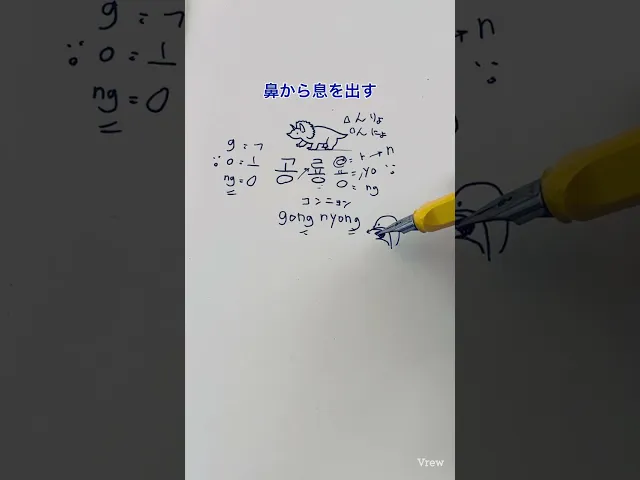 鼻から息を出す
g = ㄱ
o = ㅗ
ng = o
공룡
r → n
ㅛ = yo
o = ng
コンニョン
gong nyong
Vrew